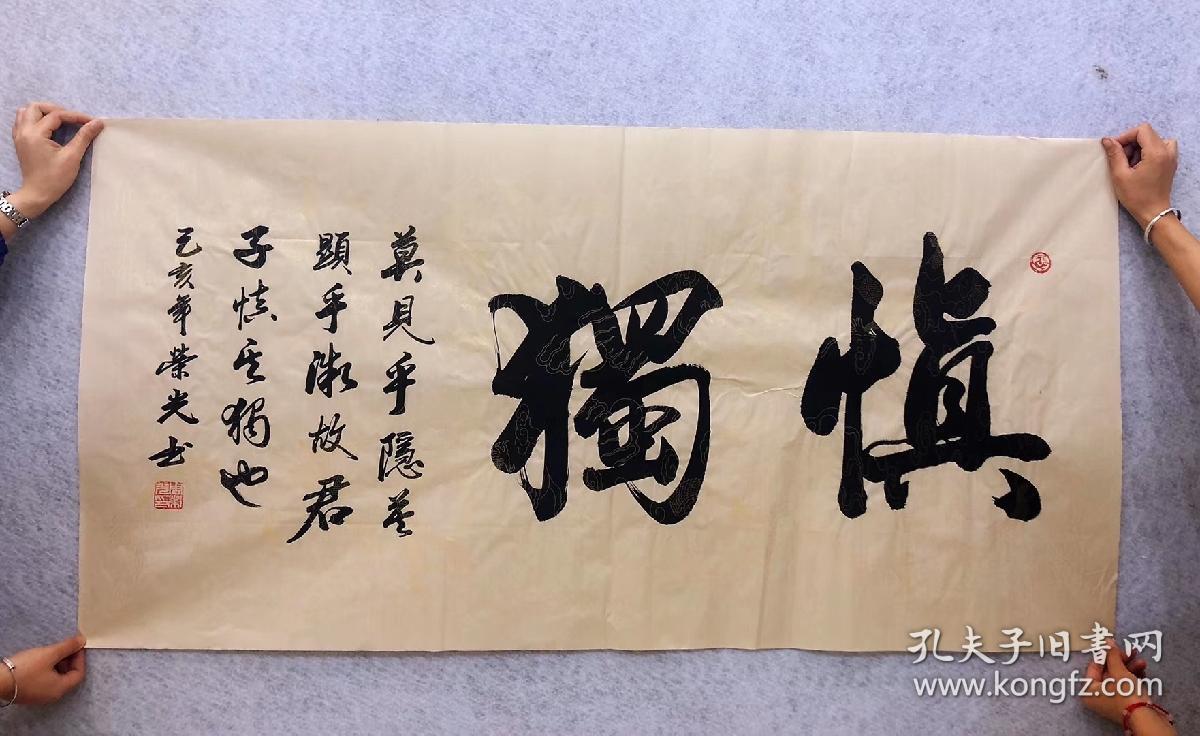 慎獨
莫見乎隱莫
顯乎微故君
子慎其獨也
己亥年榮光书
孔夫子旧书网
www.kongfz.com